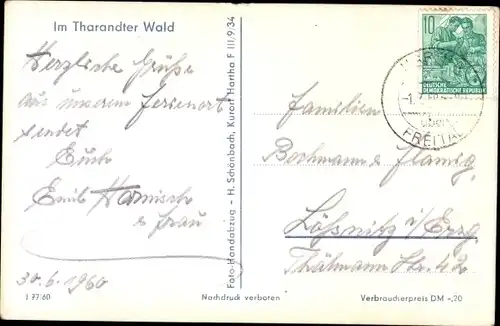 Im Tharandter Wald
Herzliche Grüße
aus unserem Ferienort
sendet
Euch
Emil Harnisch
& Frau
30.6.1960
I 77/60
Foto-Handabzug - H. Schönbach, Kurort Hartha F III/9/34
10
DEUTSCHE
DEMOKRATISCHE REPUBLIK
FREITAL
Familien
Bochmann & Flamig
Lößnitz i/Erzg.
Thälmann Str. 42
Nachdruck verboten
Verbraucherpreis DM -,20